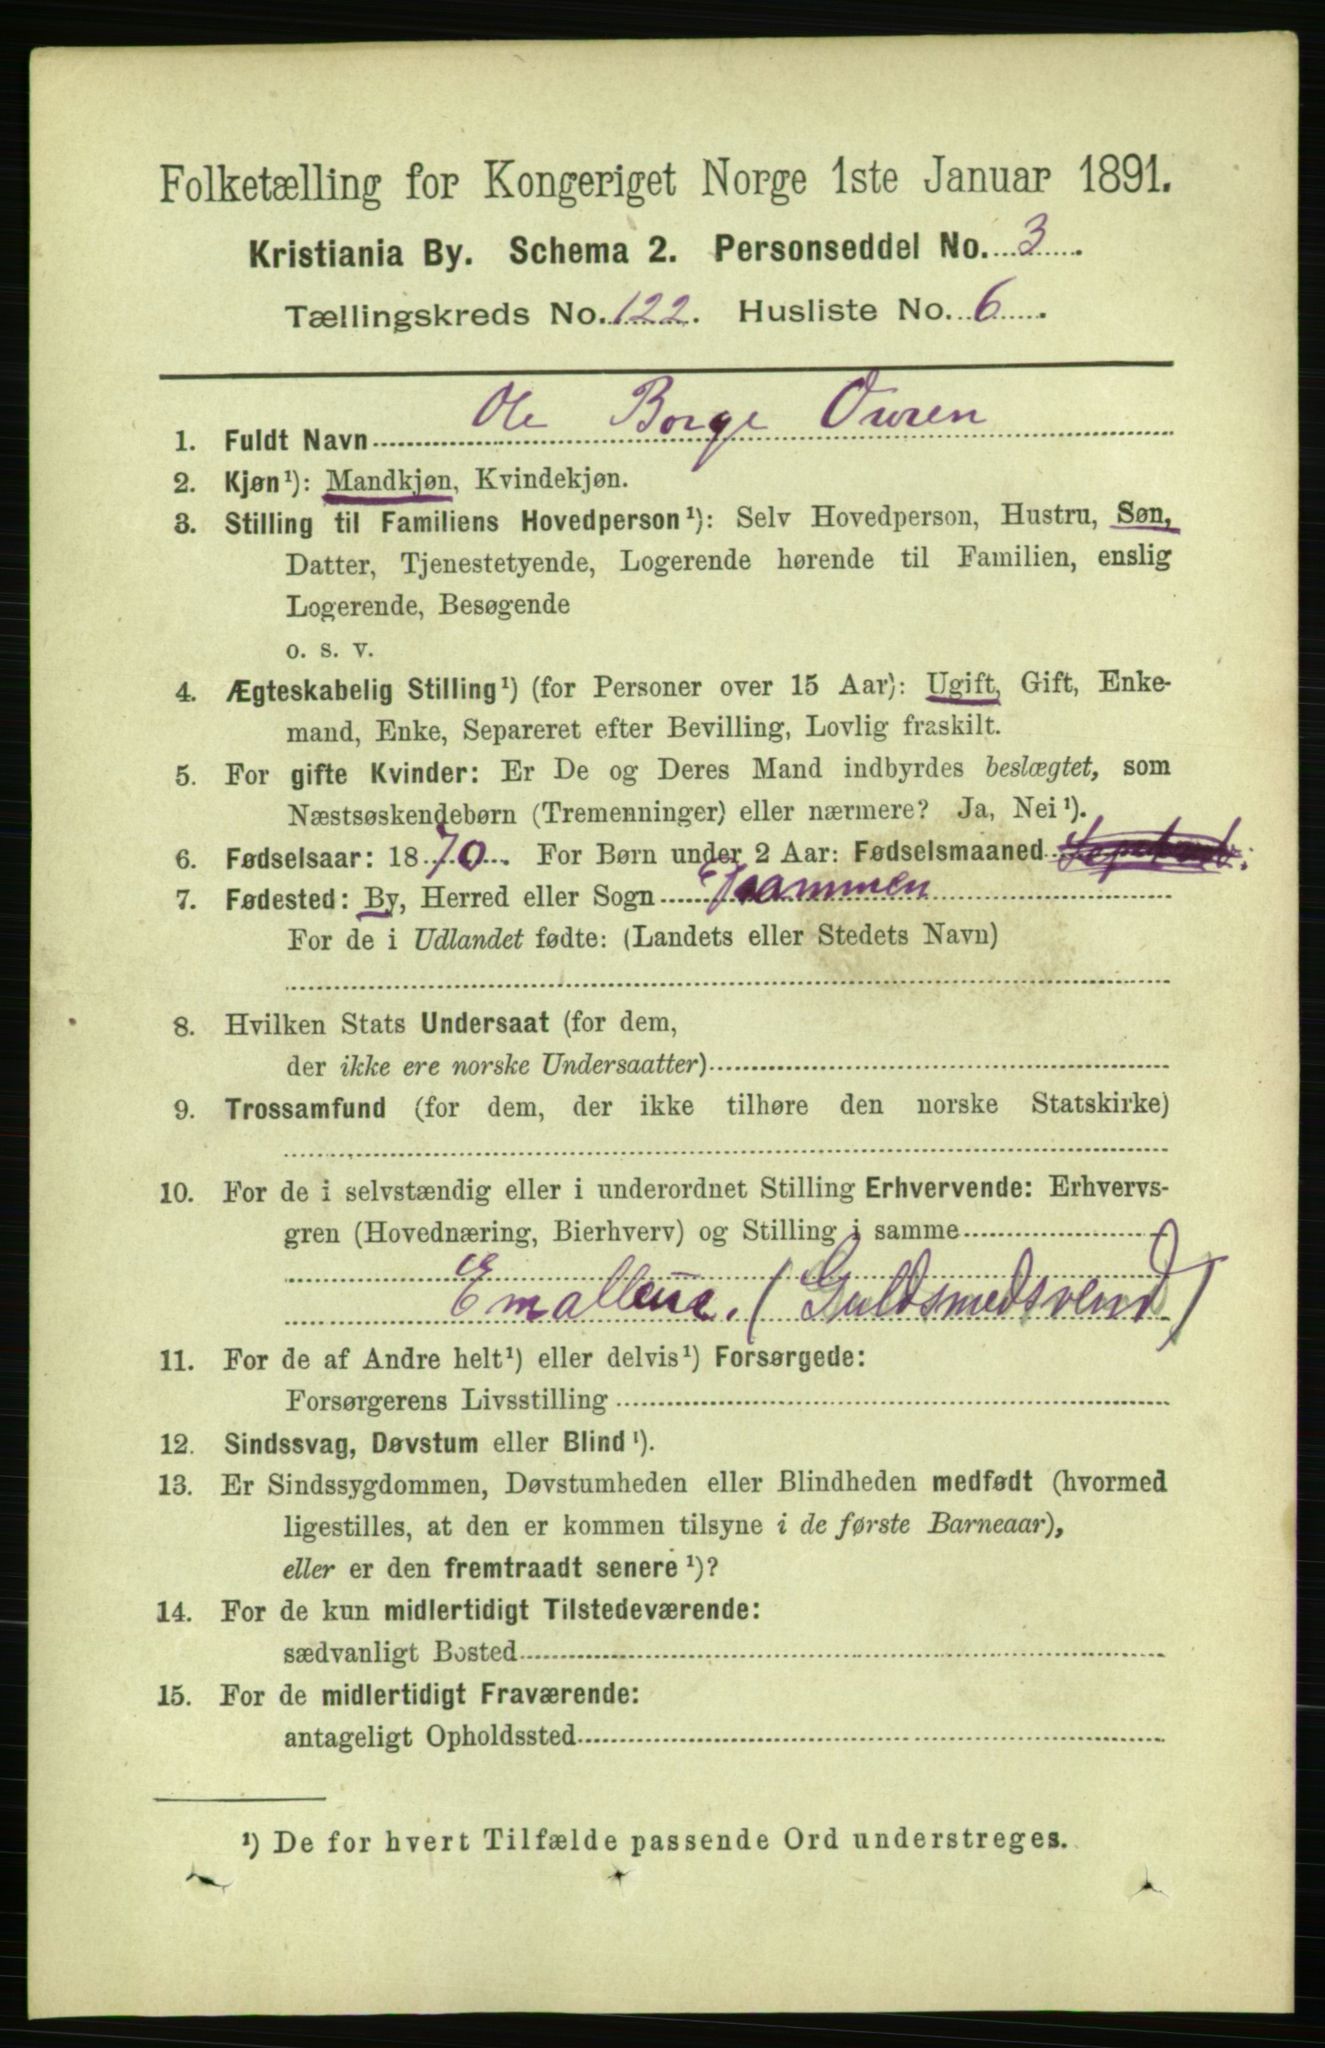 Folketælling for Kongeriget Norge 1ste Januar 1891.
Kristiania By. Schema 2. Personseddel No. 3.
Tællingskreds No. 122. Husliste No. 6.
1. Fuldt Navn Ole Borge Owren
2. Kjøn¹): Mandkjøn, Kvindekjøn.
3. Stilling til Familiens Hovedperson¹): Selv Hovedperson, Hustru, Søn,
Datter, Tjenestetyende, Logerende hørende til Familien, enslig
Logerende, Besøgende
o. s. v.
4. Ægteskabelig Stilling¹) (for Personer over 15 Aar): Ugift, Gift, Enke-
mand, Enke, Separeret efter Bevilling, Lovlig fraskilt.
5. For gifte Kvinder: Er De og Deres Mand indbyrdes beslægtet, som
Næstsøskendebørn (Tremenninger) eller nærmere? Ja, Nei¹).
6. Fødselsaar: 1870. For Børn under 2 Aar: Fødselsmaaned
7. Fødested: By, Herred eller Sogn Drammen
For de i Udlandet fødte: (Landets eller Stedets Navn)
8. Hvilken Stats Undersaat (for dem,
der ikke ere norske Undersaatter)
9. Trossamfund (for dem, der ikke tilhøre den norske Statskirke)
10. For de i selvstændig eller i underordnet Stilling Erhvervende: Erhvervs-
gren (Hovednæring, Bierhverv) og Stilling i samme
(Guldsmedsvend)
11. For de af Andre helt¹) eller delvis¹) Forsørgede:
Forsørgerens Livsstilling
12. Sindssvag, Døvstum eller Blind¹).
13. Er Sindssygdommen, Døvstumheden eller Blindheden medfødt (hvormed
ligestilles, at den er kommen tilsyne i de første Barneaar),
eller er den fremtraadt senere¹)?
14. For de kun midlertidigt Tilstedeværende:
sædvanligt Bosted
15. For de midlertidigt Fraværende:
antageligt Opholdssted
¹) De for hvert Tilfælde passende Ord understreges.